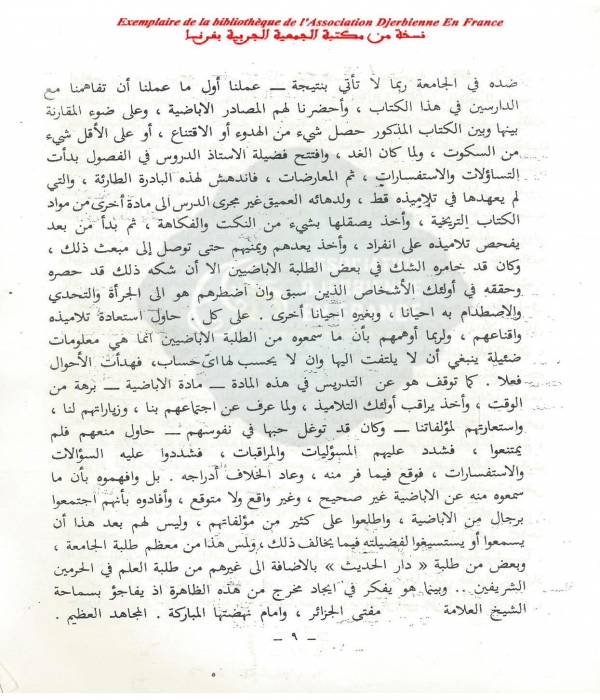 Exemplaire de la bibliothèque de l'Association Djerbienne En France
نسخة من مكتبة الجمعية الجربية بفرنسا
ضده في الجامعة ربما لا تأتي بنتيجة — عملنا أول ما عملنا أن تفاهمنا مع
الدارسين في هذا الكتاب ، وأحضرنا لهم المصادر الاباضية ، وعلى ضوء المقارنة
بينها وبين الكتاب المذكور حصل شيء من الهدوء أو الاقتناع ، أو على الأقل شيء
من السكوت ، ولما كان الغد ، وافتتح فضيلة الاستاذ الدروس في الفصول بدأت
التساؤلات والاستفسارات ، ثم المعارضات ، فاندهش لهذه البادرة الطارئة ، والتي
لم يعهدها في تلاميذه قط ، ولدهائه العميق غير مجرى الدرس الى مادة أخرى من مواد
الكتاب التريخية ، وأخذ يصقلها بشيء من النكت والفكاهة ، ثم بدأ من بعد
يفحص تلاميذه على انفراد ، وأخذ يعدهم ويمنيهم حتى توصل إلى مبعث ذلك ،
وكان قد خامره الشك في بعض الطلبة الاباضيين الا أن شكه ذلك قد حصره
وحققه في أولئك الأشخاص الذين سبق وان اضطرهم هو الى الجرأة والتحدي
والاصطدام به احيانا ، وبغيره احيانا أخرى . على كل ، حاول استعادة تلاميذه
واقناعهم ، ولربما أوهمهم بأن ما سمعوه من الطلبة الاباضيين انما هي معلومات
ضئيلة ينبغي أن لا يلتفت اليها وان لا يحسب لها اى حساب، فهدأت الأحوال
فعلا . كما توقف هو عن التدريس في هذه المادة — مادة الاباضية — برهة من
الوقت ، وأخذ يراقب أولئك التلاميذ ، ولما عرف عن اجتماعهم بنا ، وزياراتهم لنا ،
واستعارتهم لمؤلفاتنا — وكان قد توغل حبها في نفوسهم — حاول منعهم فلم
يمتنعوا ، فشدد عليهم المسؤليات والمراقبات ، فشددوا عليه السؤالات
والاستفسارات ، فوقع فيما فر منه ، وعاد الخلاف أدراجه . بل وافهموه بأن ما
سمعوه منه عن الاباضية غير صحيح ، وغير واقع ولا متوقع ، وأفادوه بأنهم اجتمعوا
برجال من الاباضية ، واطلعوا على كثير من مؤلفاتهم ، وليس لهم بعد هذا أن
يسمعوا أو يستسيغوا لفضيلته فيما يخالف ذلك ، ولمس هذا من معظم طلبة الجامعة ،
وبعض من طلبة « دار الحديث » بالاضافة الى غيرهم من طلبة العلم في الحرمين
الشريفين .. وبينما هو يفكر في ايجاد مخرج من هذه الظاهرة اذ يفاجؤ بسماحة
الشيخ العلامة مفتي الجزائر ، وامام نهضتها المباركة . المجاهد العظيم .
— ٩ —